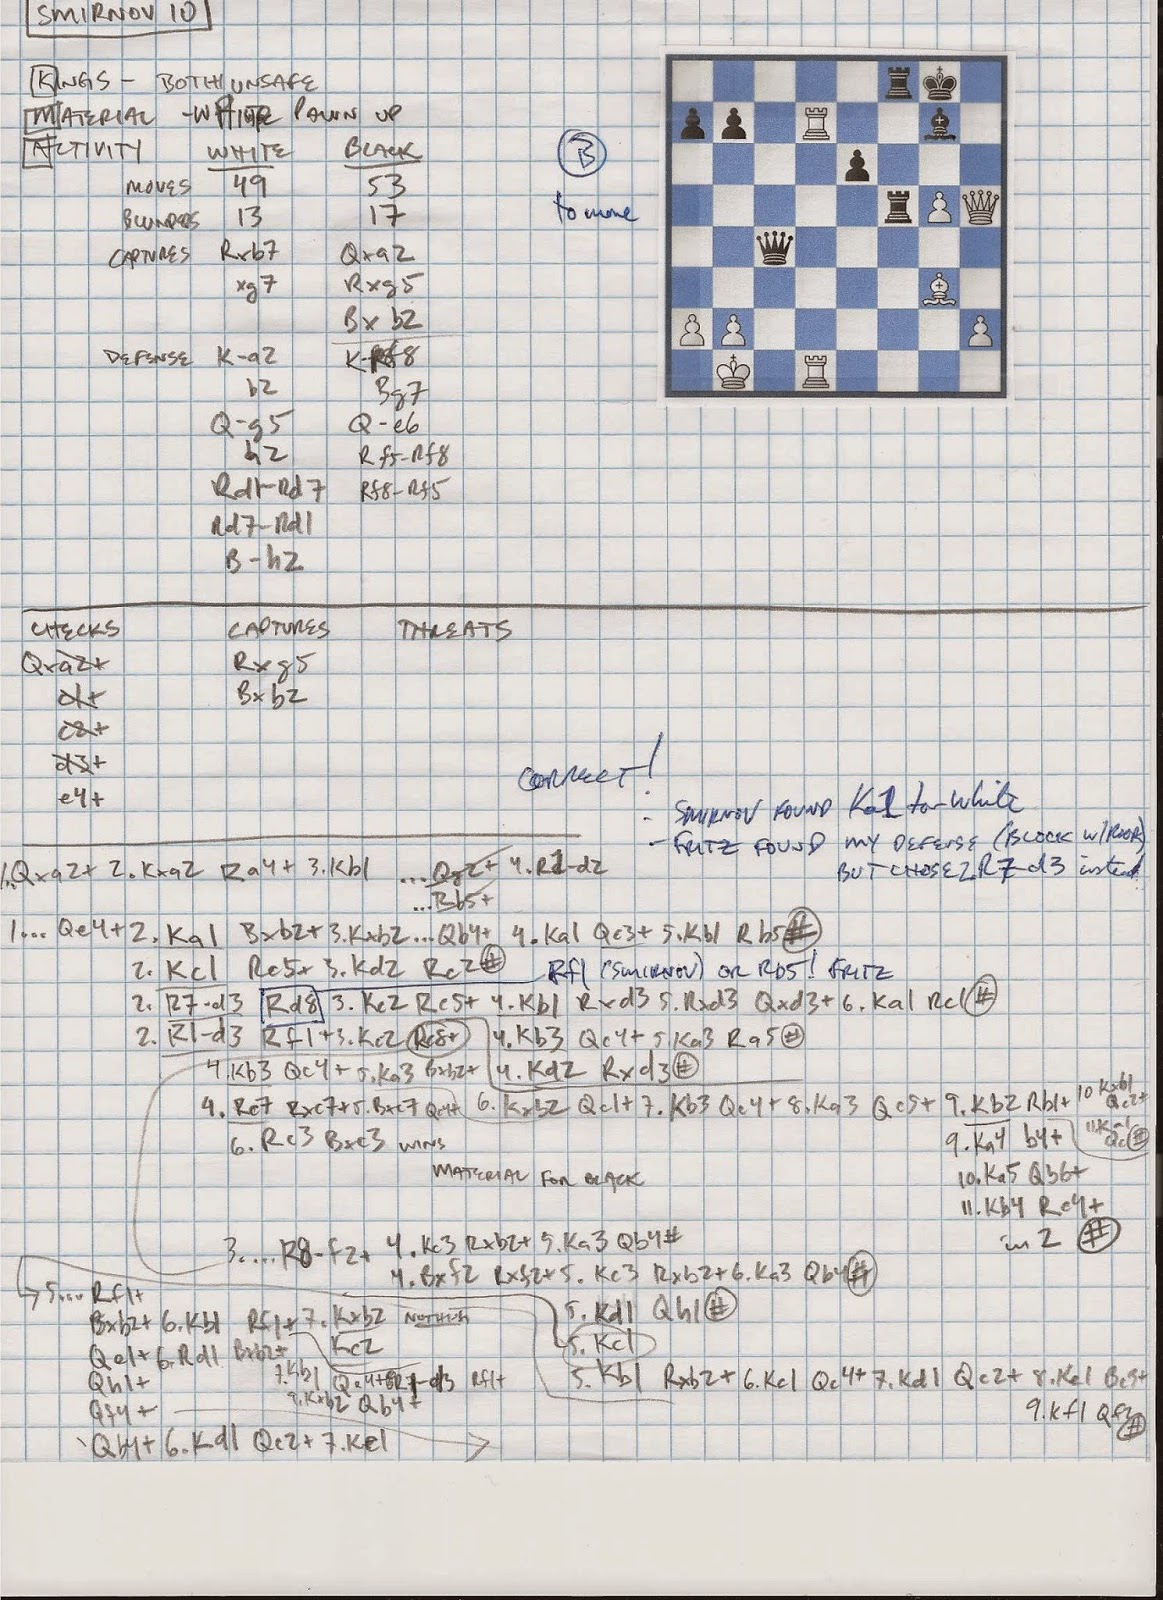 SMIRNOV 10
KINGS - BOTH UNSAFE
MATERIAL - WHITE PAWN UP
ACTIVITY WHITE BLACK
MOVES 49 53
BLUNDERS 13 17
CAPTURES Rxb7 Qxa2
xg7 Rxg5
Bxb2
DEFENSE K-a2 K-Rf8
b2 Bg7
Q-g5 Q-e6
h2 Rf5-Rf8
Rd1-Rd7 Rf8-Rf5
Rd7-Rd1
B-h2
B
to move
CHECKS CAPTURES THREATS
Qxa2+ Rxg5
d1+ Bxb2
c2+
d3+
e4+
CORRECT!
- SMIRNOV FOUND Ka1 for White
- FRITZ FOUND MY DEFENSE (BLOCK W/ROOK)
BUT CHOSE 2R7-d3 instead
1...Qxa2+ 2.Kxa2 Ra4+ 3.Kb1 ...Qg2+ 4.R1-d2
...Bb5+
1... Qe4+ 2. Ka1 Bxb2+ 3.Kxb2 ...Qb4+ 4.Ka1 Qc3+ 5.Kb1 Rb5#
2. Kc1 Rc5+ 3.Kd2 Rc2# Rf1 (SMIRNOV) OR Rb5! FRITZ
2. R7-d3 Rd8 3. Kc2 Rc5+ 4.Kb1 Rxd3 5.Rxd3 Qxd3+ 6.Ka1 Rc1#
2. R1-d3 Rf1+ 3.Kc2 Rc8+ 4.Kb3 Qc4+ 5.Ka3 Ra5#
4.Kb3 Qc4+ 5.Ka3 Bxb2+ 4.Kd2 Rxd3#
4. Rc7 Rxc7+ 5.Bxc7 Qc4+ 6.Kxb2 Qc1+ 7.Kb3 Qc4+ 8.Ka3 Qc5+ 9.Kb2 Rb1+ 10.Kxb1 Qc2+
6. Rc3 Bxc3 WINS
MATERIAL FOR BLACK
9.Ka4 b4+ 11.Ka1 Qc1#
10.Ka5 Qb6+
11.Kb4 Rc4+
in 2 #
3....R8-f2+ 4.Kc3 Rxb2+ 5.Ka3 Qb4#
4.Bxf2 Rxf2+ 5. Kc3 Rxb2+ 6.Ka3 Qb4#
5....Rf1+ 5.Kd1 Qh1#
Bxb2+ 6.Kb1 Rf1+ 7.Kxb2 NOTHING 5.Kc1
Kc2
Qe1+ 6.Rd1 Bxb2+ 7.Kb1 Qe4+ 8R7-d3 Rf1+ 5.Kb1 Rxb2+ 6.Kc1 Qc4+ 7.Kd1 Qc2+ 8.Ke1 Bc3+
Qh1+ 9.Kxb2 Qb4+
9.Kf1 Qf2#
Qf4+
Qb4+ 6.Kd1 Qc2+ 7.Ke1